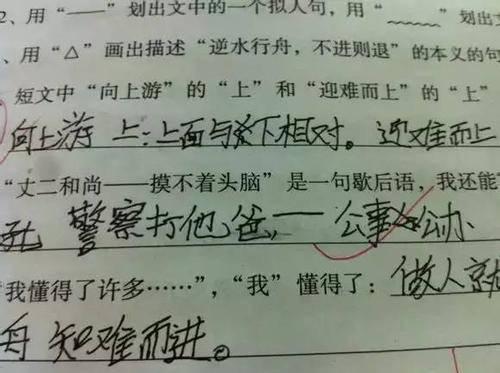 2、用“——”划出文中的一个拟人句，用“﹏﹏”划出文
、用“△”画出描述“逆水行舟，不进则退”的本义的句
短文中“向上游”的“上”和“迎难而上”的“上”
向上游 上：上面与发下相对。迎难而上
“丈二和尚——摸不着头脑”是一句歇后语，我还能
警察打他爸，——公事公办
“我懂得了许多……”，“我”懂得了：做人就
舟 知难而进。